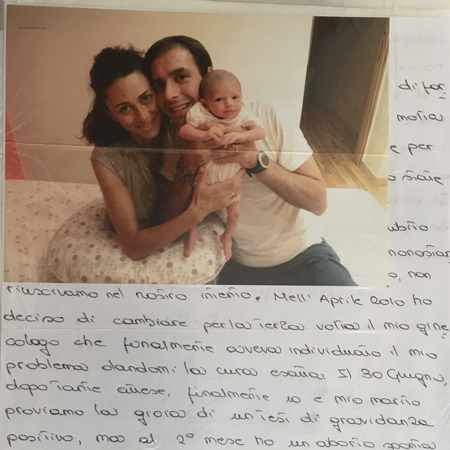 di far
moria
e per
o siare
nonostan
o, non
riuscivamo nel nostro intento. Nell'Aprile 2010 ho
deciso di cambiare per la terza volta il mio gine
cologo che finalmente aveva individuato il mio
problema dandomi la cura esatta. Il 30 Giugno,
dopo tante attese, finalmente io e mio marito
proviamo la gioia di un test di gravidanza
positivo, ma al 2° mese ho un aborto sponta